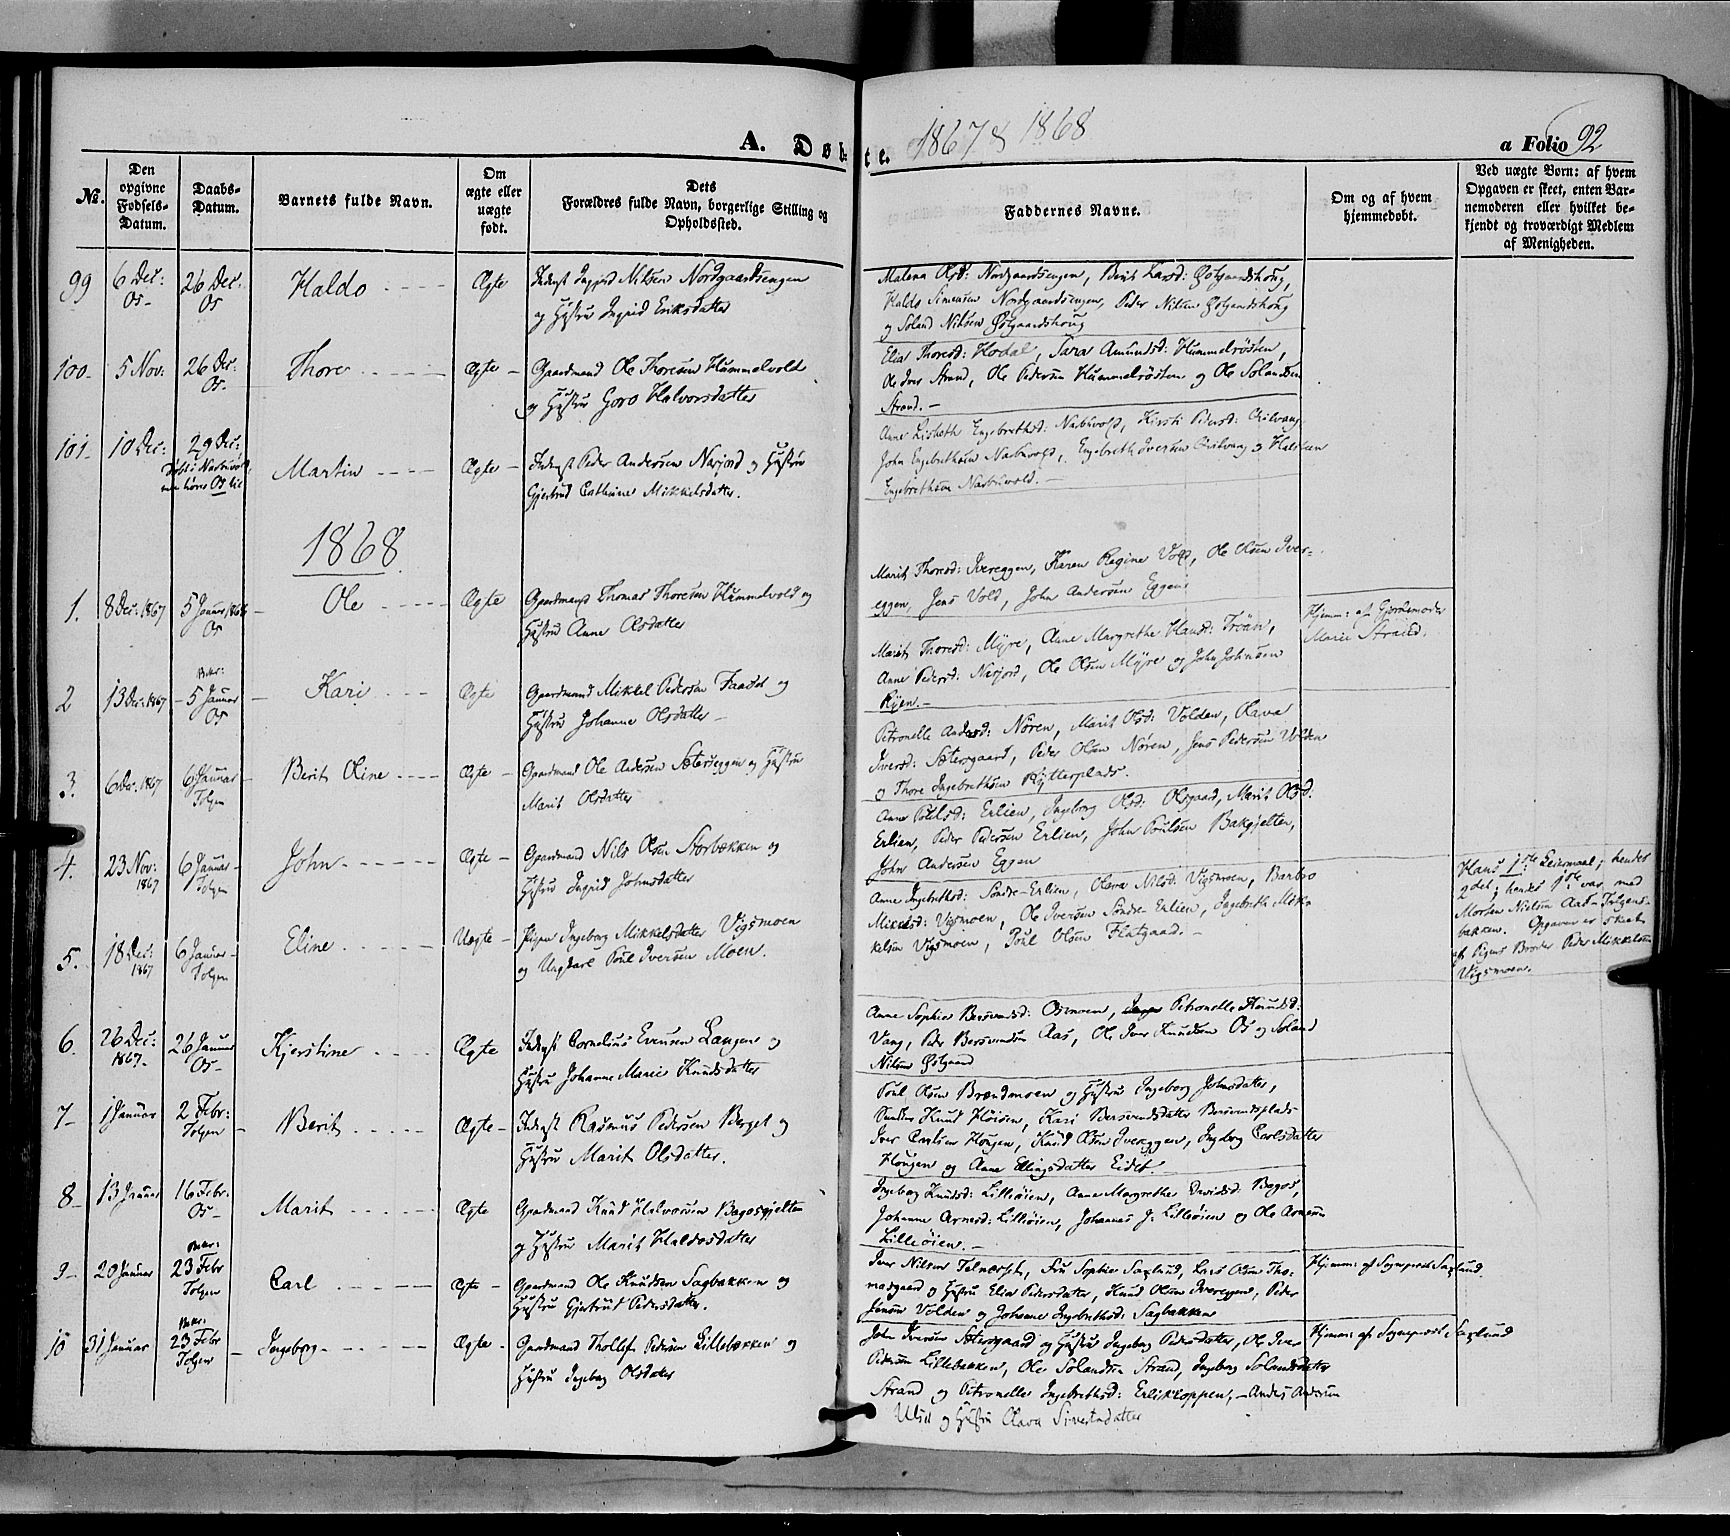 A. Døb-
te. 1867 & 1868
a Folio 92
No.
Den opgivne Fødsels-Datum.
Daabs-Datum.
Barnets fulde Navn.
Om ægte eller uægte født.
Dets
Forældres fulde Navn, borgerlige Stilling og
Opholdssted.
Faddernes Navne.
Om og af hvem
hjemmedøbt.
Ved uægte Børn: af hvem
Opgaven er skeet, enten Bar-
nemoderen eller hvilket be-
kjendt og troværdigt Medlem
af Menigheden.
99 6 Dec: Os- 26 Dec: Os Haldo Ægte Inderst Nilsen Nordgaardsengen
og Hustru Ingrid Eriksdatter
Malena Olsd: Nordgaardsengen, Berit Larsd: Østgaardshoug,
Haldo Simensen Nordgaardsengen, Peder Nilsen Østgaardshoug
og Soland Nilsen Østgaardshoug
100- 5 Nov: 26 Dec: Os. Thore Ægte - Gaardmand Ole Thoresen Hummelvold
og Hustru Goro Halvorsdatter
Elia Thoresd: Hodal, Sara Amundsd: Hummelrøsten,
Ole Iver Strand, Ole Pedersen Hummelrøsten og Ole Solandsen
Strand.-
101- 10 Dec: 29 Dec: Døbt i Narbuvold, men hører Os til Martin Ægte - Inderst Peder Andersen Narjord og Hustru
Gjertrud Cathrine Mikkelsdatter.
Anne Lisbeth Engebrethsd: Narbuvold, Kirsti Pedersd:
John Engebrethsen Narbuvold, Engebreth Iversen og Halsten
Engebrethsen Narbuvold.-
1868
1. 8 Dec: 1867 5 Januar 1868 Os Ole Ægte Gaardmand Thomas Thoresen Hummelvold og
Hustru Anne Olsdatter
Marit Thoresd: Ivereggen, Karen Regine Vold, Ole Olsen Iver-
eggen, Jens Vold, John Andersen Eggen
Hjemm: af Gjordemoder
Marie Strand.
2 13 Dec: 1867 Bekr: 5 Januar Os Kari Ægte Gaardmand Mikkel Pedersen Faasd og
Hustru Johanne Olsdatter -
Marit Thoresd: Myre, Anne Margrethe Hansd: Trøan,
Anne Pedersd: Narjord, Ole Olsen Myre og John Johnsen
Ryen.-
3. 6 Dec. 1867 6 Januar Tolgen Berit Oline Ægte - Gaardmand Ole Andersen Sæterseggen og Hustru
Marit Olsdatter
Petronelle Andersd: Nøren, Marit Olsd: Volden, Olava
Iversd: Sætersgaard, Peder Olsen Nøren, Jens Pedersen Volden
og Thore Ingebrethsen Rytterplads.
4. 23 Nov: 1867 6 Januar Tolgen John Ægte - Gaardmand Nils Olsen Storbækken og
Hustru Ingrid Johnsdatter
Anne Poulsd: Erlien, Ingeborg Olsd: Olsgaard, Marit Olsd:
Erlien, Peder Pedersen Erlien, John Poulsen Bakgjelten,
John Andersen Eggen
5. 18 Dec: 1867 6 Januar Tolgen Eline Uægte - Pigen Ingeborg Mikkelsdatter Vigsmoen
og Ungkarl Poul Iversen Moen.
Anne Ingebrethsd: Søndre-Erlien, Olava Nilsd: Vigsmoen, Barbro
Mikkelsd: Vigsmoen, Ole Iversen Søndre-Erlien, Ingebreth Mik-
kelsen Vigsmoen, Poul Olsen Flatgaard.-
Hans 1ste Leiermaal; hendes
2det; hendes 1ste var med
Morten Nielsen Aas-Tolgens-
bakken. Opgaven er skeet
af Pigens Broder Peder Mikkelsen
Vigsmoen.
6. 26 Dec: 1867- 26 Januar Os- Kjerstine Ægte Inderst Cornelius Evensen Langen og
Hustru Johanne Marie Knudsdatter
Anne Sophie Bersvendsd: Osmoen, Petronelle Knudsd:
Vang, Peder Bersvendsen Aas, Ole Iver Knudsen Os og Soland
Nilsen Østgaard
7- 1 Januar 2 Febr: Tolgen Berit Ægte - Inderst Rasmus Pedersen Berget og
Hustru Marit Olsdatter.
Poul Olsen Brændmoen og Hustru Ingeborg Johnsdatter,
Knud Høisen, Kari Bersvendsdatter Bersvendsplads
Iver Carlsen Hougen, Knud Olsen Ivereggen, Ingeborg Carlsdatter
Hougen og Anne Ellingsdatter Eidet.
8- 13 Januar 16 Febr: Os- Marit Ægte Gaardmand Knud Halvorsen Bagosgjelten
og Hustru Marit Haldosdatter
Ingeborg Knudsd: Lilleøien, Anne Margrethe Davidsd: Bagos,
Johanne Arnesd: Lilleøien, Johannes J: Lilleøien og Ole Arnesen
Lilleøien.-
9- 20 Januar Bekr: 23 Febr Tolgen Carl Ægte - Gaardmand Ole Knudsen Sagbakken og
Hustru Gjertrud Pedersdatter.
Iver Nilsen Telneset, Fru Sophie Saxlund, Lars Olsen Tho-
masgaard og Hustru Elia Pedersdatter, Knud Olsen Ivereggen, Peder
Jensen Volden og Johanne Ingebrethsd: Sagbakken
Hjemm: af Sogneprest Saxlund.
10 31 Januar Bekr: 23 Febr Tolgen Ingeborg Ægte - Gaardmand Thollef Pedersen Lillebækken og
Hustru Ingeborg Olsdatter
John Iversen Sætersgaard og Hustru Ingeborg Pedersdatter, Ole Iver
Pedersen Lillebækken, Ole Solandsen Strand, Ingeborg Solandsdatter
Strand og Petronelle Ingebrethsd: Erlikloppen, - Anders Andersen
Ulset og Hustru Olava Sivertsdatter
Hjemm: af Sogneprest Saxlund